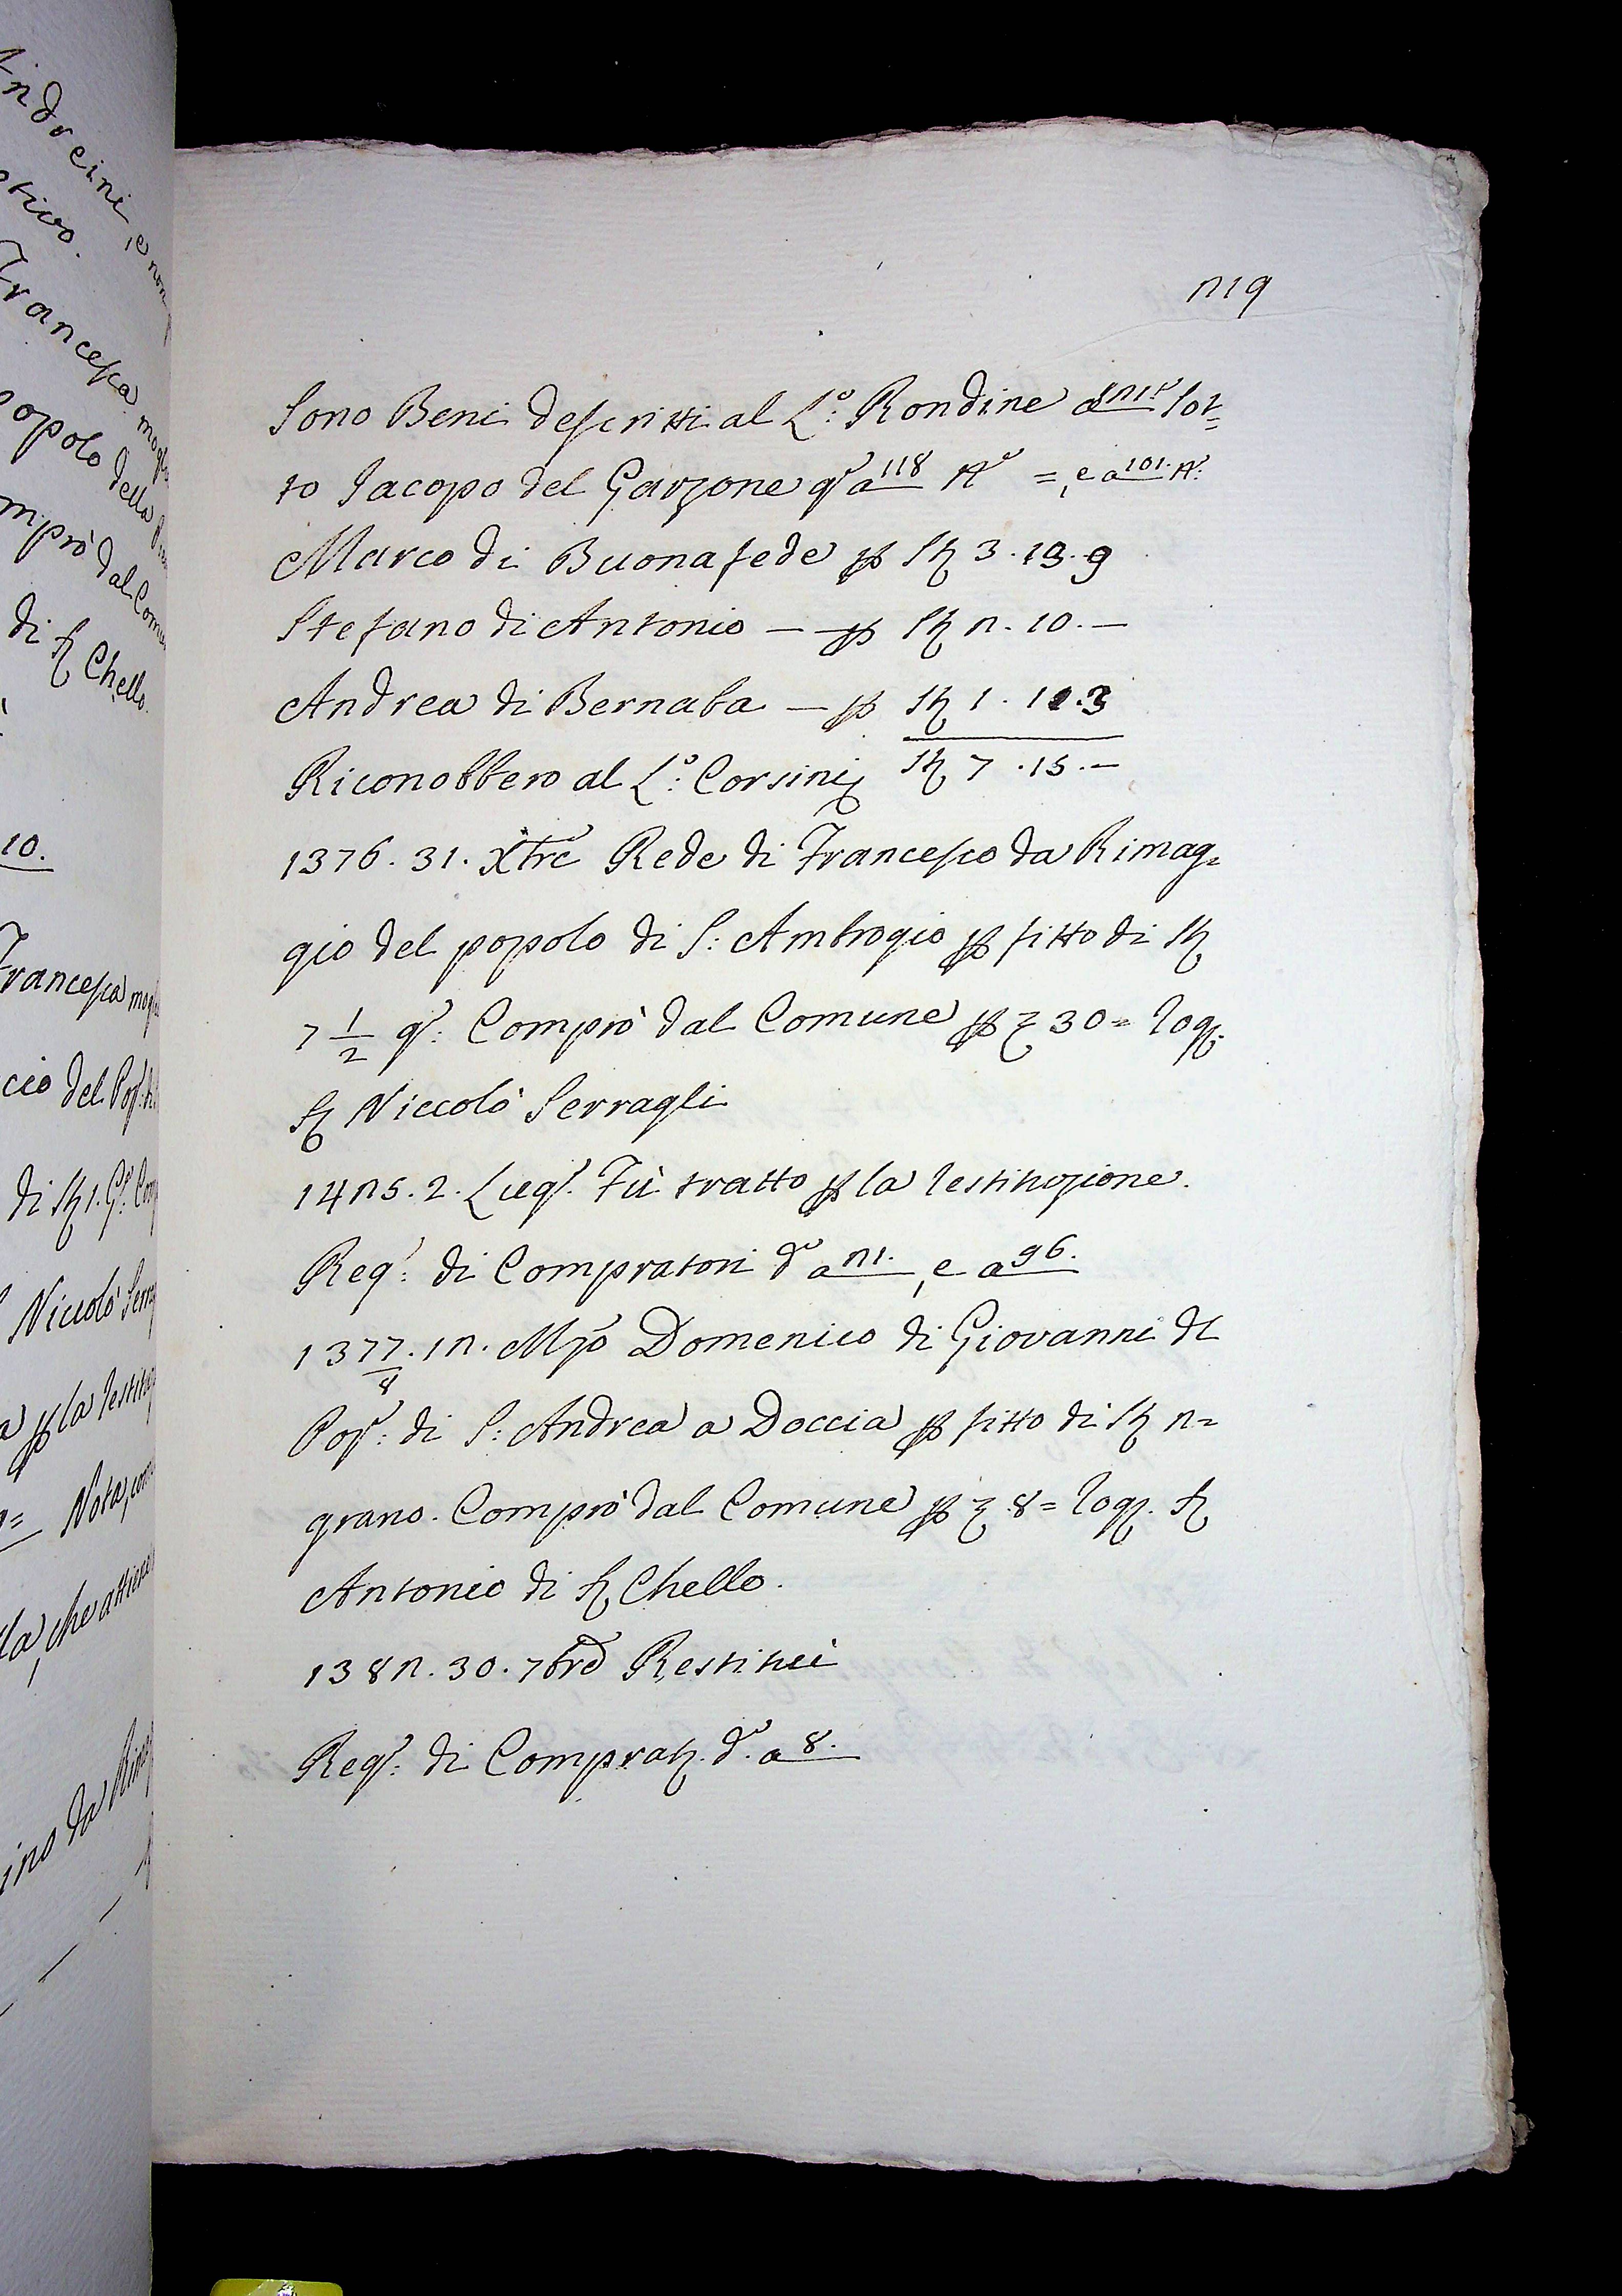 Andreini, e non
otivo.
Francesca mogli
popolo della
mprò dal Comu
di S Chello.
10.
Francesca mog
cio del Pop:
di St 1. G: Com
Niccolò Serra
la restitu
Nota, com
la, che attiene
ino da Rimag
219
Sono Beni descritti al L:o Rondine a 21 Sot=
to Jacopo del Garzone q.o a 118 N.o =, e a 101. N.o
Marco di Buonafede p St 3. 13. 9
Stefano di Antonio — — p St 2. 10. —
Andrea di Bernaba — p St 1. 11. 3
Riconobbero al L:o Corsini St 7. 15. —
1376. 31. Xbre Rede di Francesco da Rimag=
gio del popolo di S: Ambrogio p fitto di St
7 1/2 g: Comprò dal Comune p 30= rog.
S Niccolò Serragli
1425. 2. Lug. Fù tratto p la restituzione.
Reg: di Compratori d.o a 21., e a 96.
1377/8. 12. Mzo Domenico di Giovanni del
Pop: di S: Andrea a Doccia p fitto di St 2=
grano. Comprò dal Comune p 8= rog. S
Antonio di S Chello.
1382. 30. 7bre Restituì
Reg: di Comprat. d.o a 8.